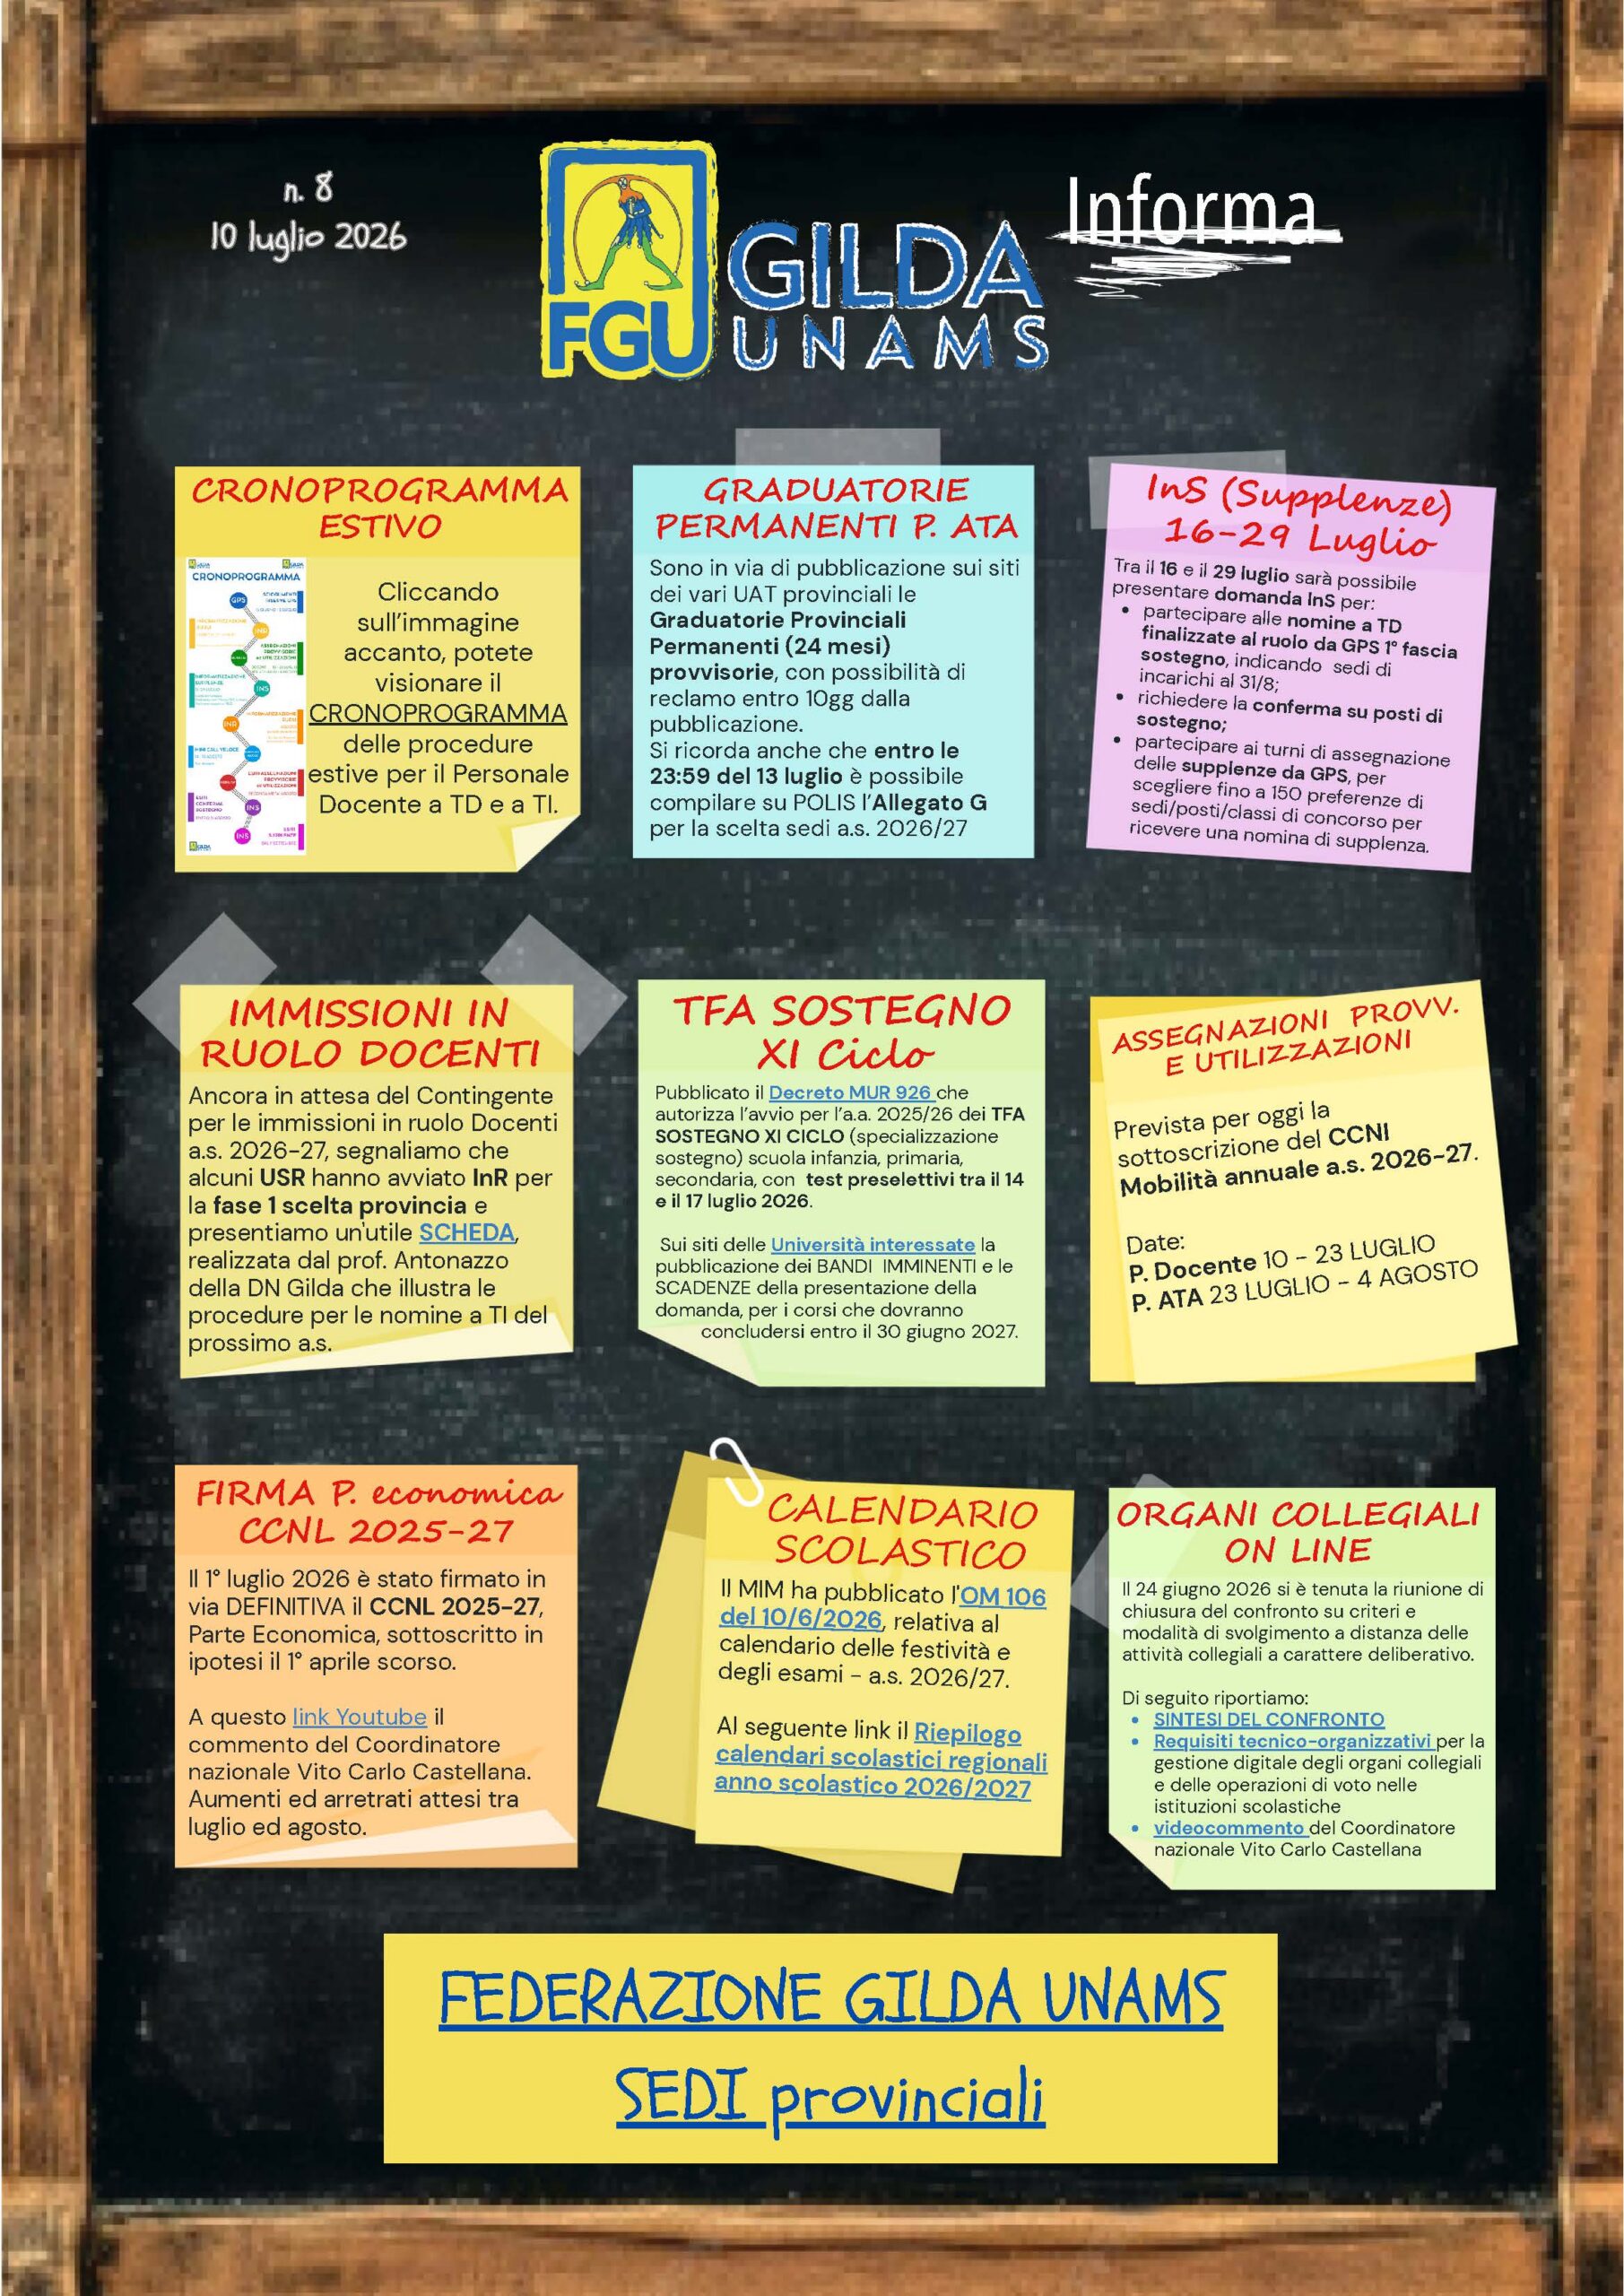 n. 8
10 luglio 2026
FGU
GILDA
UNAMS
Informa
CRONOPROGRAMMA
ESTIVO
CRONOPROGRAMMA
Cliccando
sull'immagine
accanto, potete
visionare il
CRONOPROGRAMMA
delle procedure
estive per il Personale
Docente a TD e a TI.
GRADUATORIE
PERMANENTI P. ATA
Sono in via di pubblicazione sui siti
dei vari UAT provinciali le
Graduatorie Provinciali
Permanenti (24 mesi)
provvisorie, con possibilità di
reclamo entro 10gg dalla
pubblicazione.
Si ricorda anche che entro le
23:59 del 13 luglio è possibile
compilare su POLIS l'Allegato G
per la scelta sedi a.s. 2026/27
InS (Supplenze)
16-29 Luglio
Tra il 16 e il 29 luglio sarà possibile
presentare domanda InS per:
• partecipare alle nomine a TD
finalizzate al ruolo da GPS 1° fascia
sostegno, indicando sedi di
incarichi al 31/8;
• richiedere la conferma su posti di
sostegno;
• partecipare ai turni di assegnazione
delle supplenze da GPS, per
scegliere fino a 150 preferenze di
sedi/posti/classi di concorso per
ricevere una nomina di supplenza.
IMMISSIONI IN
RUOLO DOCENTI
Ancora in attesa del Contingente
per le immissioni in ruolo Docenti
a.s. 2026-27, segnaliamo che
alcuni USR hanno avviato InR per
la fase 1 scelta provincia e
presentiamo un'utile SCHEDA,
realizzata dal prof. Antonazzo
della DN Gilda che illustra le
procedure per le nomine a TI del
prossimo a.s.
TFA SOSTEGNO
XI Ciclo
Pubblicato il Decreto MUR 926 che
autorizza l'avvio per l'a.a. 2025/26 dei TFA
SOSTEGNO XI CICLO (specializzazione
sostegno) scuola infanzia, primaria,
secondaria, con test preselettivi tra il 14
e il 17 luglio 2026.
Sui siti delle Università interessate la
pubblicazione dei BANDI IMMINENTI e le
SCADENZE della presentazione della
domanda, per i corsi che dovranno
concludersi entro il 30 giugno 2027.
ASSEGNAZIONI PROVV.
E UTILIZZAZIONI
Prevista per oggi la
sottoscrizione del CCNI
Mobilità annuale a.s. 2026-27.
Date:
P. Docente 10 - 23 LUGLIO
P. ATA 23 LUGLIO - 4 AGOSTO
FIRMA P. economica
CCNL 2025-27
Il 1° luglio 2026 è stato firmato in
via DEFINITIVA il CCNL 2025-27,
Parte Economica, sottoscritto in
ipotesi il 1° aprile scorso.
A questo link Youtube il
commento del Coordinatore
nazionale Vito Carlo Castellana.
Aumenti ed arretrati attesi tra
luglio ed agosto.
CALENDARIO
SCOLASTICO
Il MIM ha pubblicato l'OM 106
del 10/6/2026, relativa al
calendario delle festività e
degli esami - a.s. 2026/27.
Al seguente link il Riepilogo
calendari scolastici regionali
anno scolastico 2026/2027
ORGANI COLLEGIALI
ON LINE
Il 24 giugno 2026 si è tenuta la riunione di
chiusura del confronto su criteri e
modalità di svolgimento a distanza delle
attività collegiali a carattere deliberativo.
Di seguito riportiamo:
• SINTESI DEL CONFRONTO
• Requisiti tecnico-organizzativi per la
gestione digitale degli organi collegiali
e delle operazioni di voto nelle
istituzioni scolastiche
• videocommento del Coordinatore
nazionale Vito Carlo Castellana
FEDERAZIONE GILDA UNAMS
SEDI provinciali